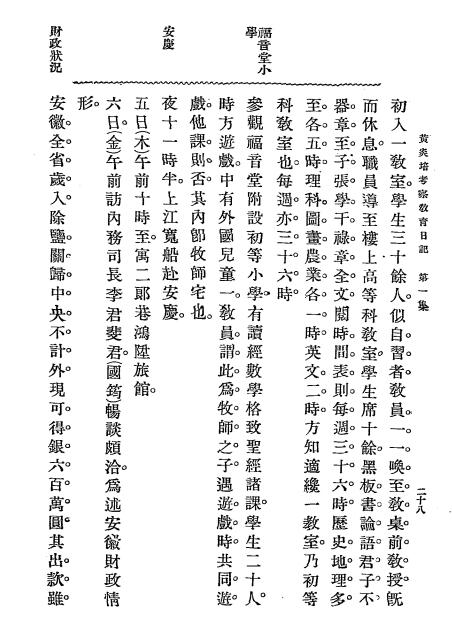 黃炎培考察教育日記　第一集
二十八
初入一教室。學生三十餘人。似自習者。教員一一喚至教桌前教授。旣
而休息。職員導至樓上高等科教室。學生席十餘。黑板書論語君子不
器章至子張學干祿章全文。閱時間表。則每週三十六時。歷史地理多
至各五時。理科圖畫農業各一時。英文二時。方知適纔一教室。乃初等
科教室也。每週亦三十六時。
福音堂小學
參觀福音堂附設初等小學。有讀經數學格致聖經諸課。學生二十人。
時方遊戲。中有外國兒童一。教員謂此爲牧師之子。遇遊戲時共同遊
戲。他課則否。其內卽牧師宅也。
安慶
夜十一時半。上江寬船赴安慶。
五日(木)午前十時至。寓二郞巷鴻陞旅館。
六日(金)午前訪內務司長李君斐君(國筠)暢談頗洽。爲述安徽財政情
形。
財政狀况
安徽全省歲入。除鹽關歸中央不計外。現可得銀六百萬圓。其出款。雖